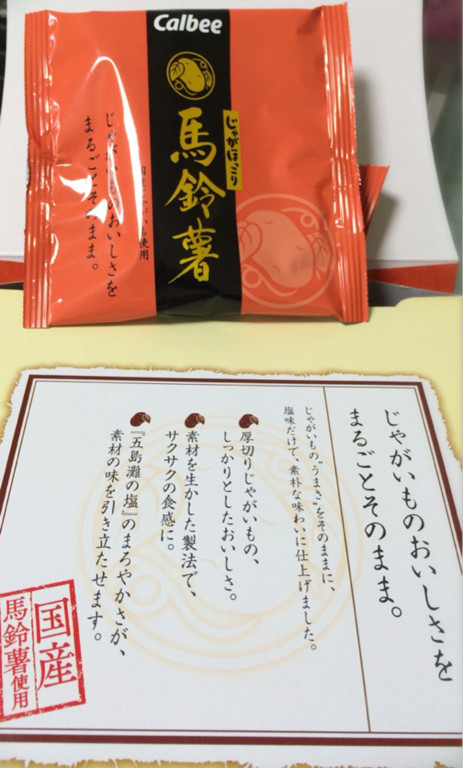 Calbee
じゃがほっこり
馬鈴薯
じゃがいものおいしさを
まるごとそのまま。
じゃがいものおいしさを
まるごとそのまま。
じゃがいもの“うまさ”をそのままに、
塩味だけで、素朴な味わいに仕上げました。
厚切りじゃがいもの、
しっかりとしたおいしさ。
素材を生かした製法で、
サクサクの食感に。
『五島灘の塩』のまろやかさが、
素材の味を引き立たせます。
国産
馬鈴薯使用